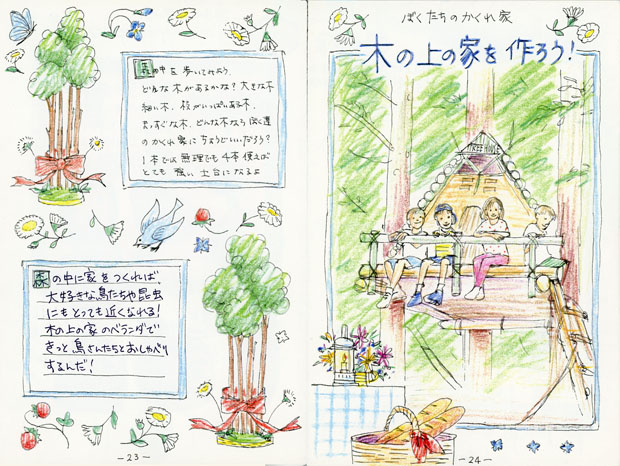 森の中を歩いてみよう。
どんな木があるかな？大きな木
細い木、枝がいっぱいある木、
まっすぐな木、どんな木なら ぼく達
のかくれ家にちょうどいいだろう？
1本では無理でも4本使えば
とても 強い 土台になるよ
森の中に家をつくれば、
大好きな鳥たちや昆虫
にもとっても近くなれる！
木の上の家のベランダで
きっと鳥さんたちとおしゃべり
するんだ！
-23-
ぼくたちのかくれ家
木の上の家を作ろう！
TREE HOUSE
-24-